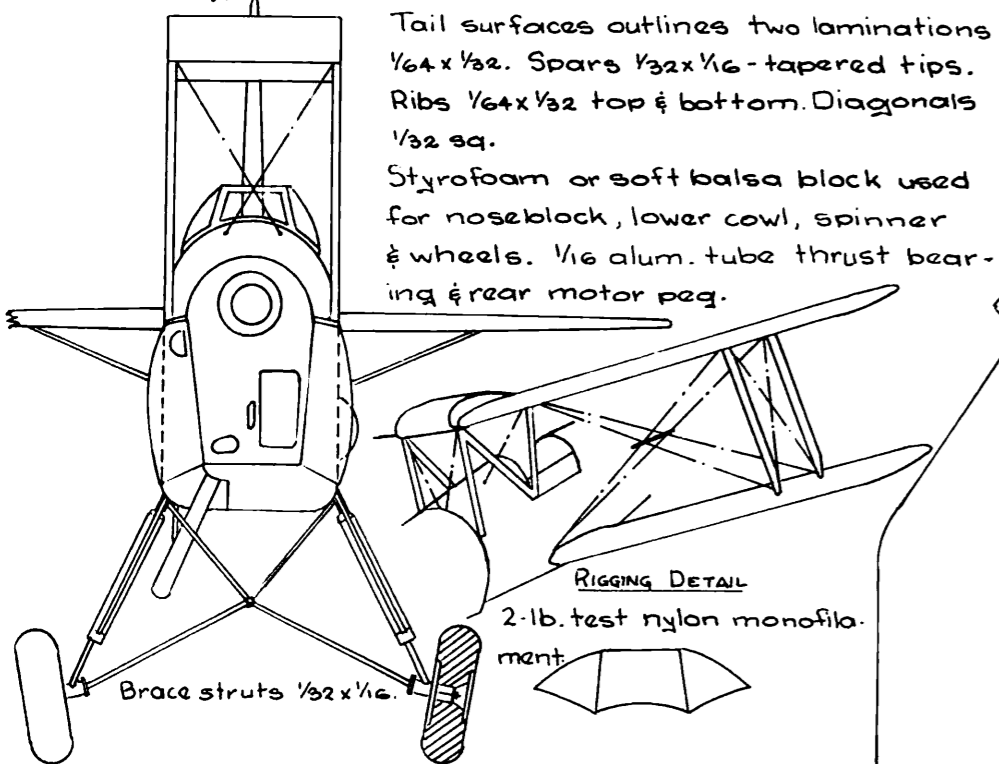 Tail surfaces outlines two laminations
1/64 x 1/32. Spars 1/32 x 1/16 - tapered tips.
Ribs 1/64 x 1/32 top & bottom. Diagonals
1/32 sq.
Styrofoam or soft balsa block used
for noseblock, lower cowl, spinner
& wheels. 1/16 alum. tube thrust bear-
ing & rear motor peg.
RIGGING DETAIL
2-lb. test nylon monofila-
ment.
Brace struts 1/32 x 1/16.